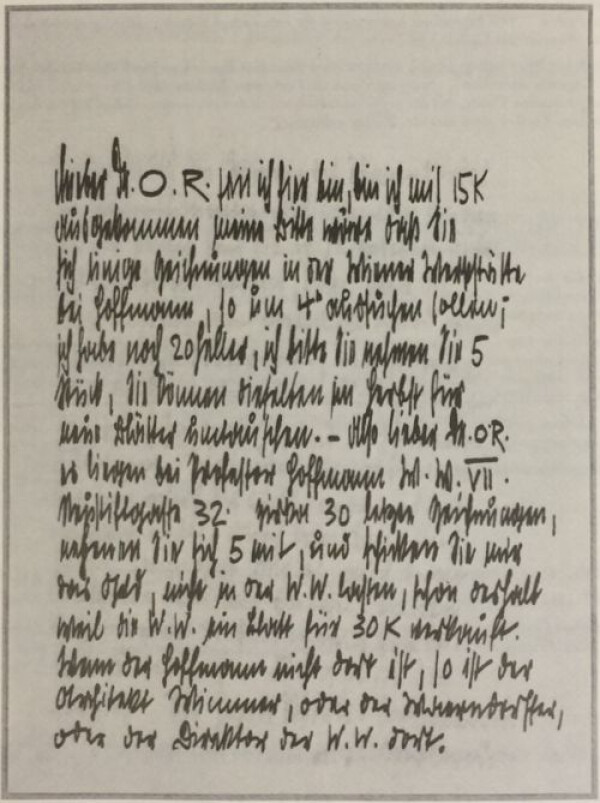 Lieber Dr. O. R. seit ich hier bin, bin ich mit 15 K
ausgekommen meine Bitte wäre daß Sie
sich einige Zeichnungen in der Wiener Werkstätte
bei Hoffmann, so um 4h aussuchen sollen;
ich habe noch 20 Heller, ich bitte Sie nehmen Sie 5
Stück, Sie können dieselben im Herbst für
neue Blätter umtauschen. – Also lieber Dr. OR.
es liegen bei Professor Hoffmann W. W. VII.
Neustiftgasse 32. zirka 30 letzte Zeichnungen,
nehmen Sie sich 5 mit, und schicken Sie mir
das Geld, nicht in der W.W. lassen, schon deshalb
weil die W.W. ein Blatt für 30 K verkauft.
Wenn der Hoffmann nicht dort ist, so ist der
Architekt Wimmer, oder der Waerndorffer,
oder der Direktor der W.W. dort.